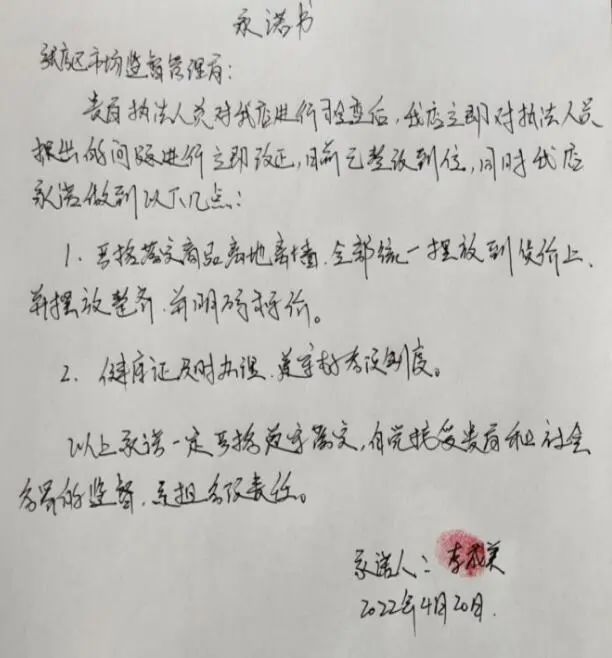 承诺书
张店区市场监督管理局:
贵局执法人员对我店进行检查后,我店立即对执法人员
提出的问题进行立即改正,目前已整改到位,同时我店
承诺做到以下几点:
1. 严格落实商品离地离墙、全部统一摆放到货架上、
并摆放整齐、并明码标价。
2. 健康证及时办理、遵守各项制度。
以上承诺一定严格遵守落实,自觉接受贵局和社会
各界的监督,承担各项责任。
承诺人: 李 美
2022年4月20日.